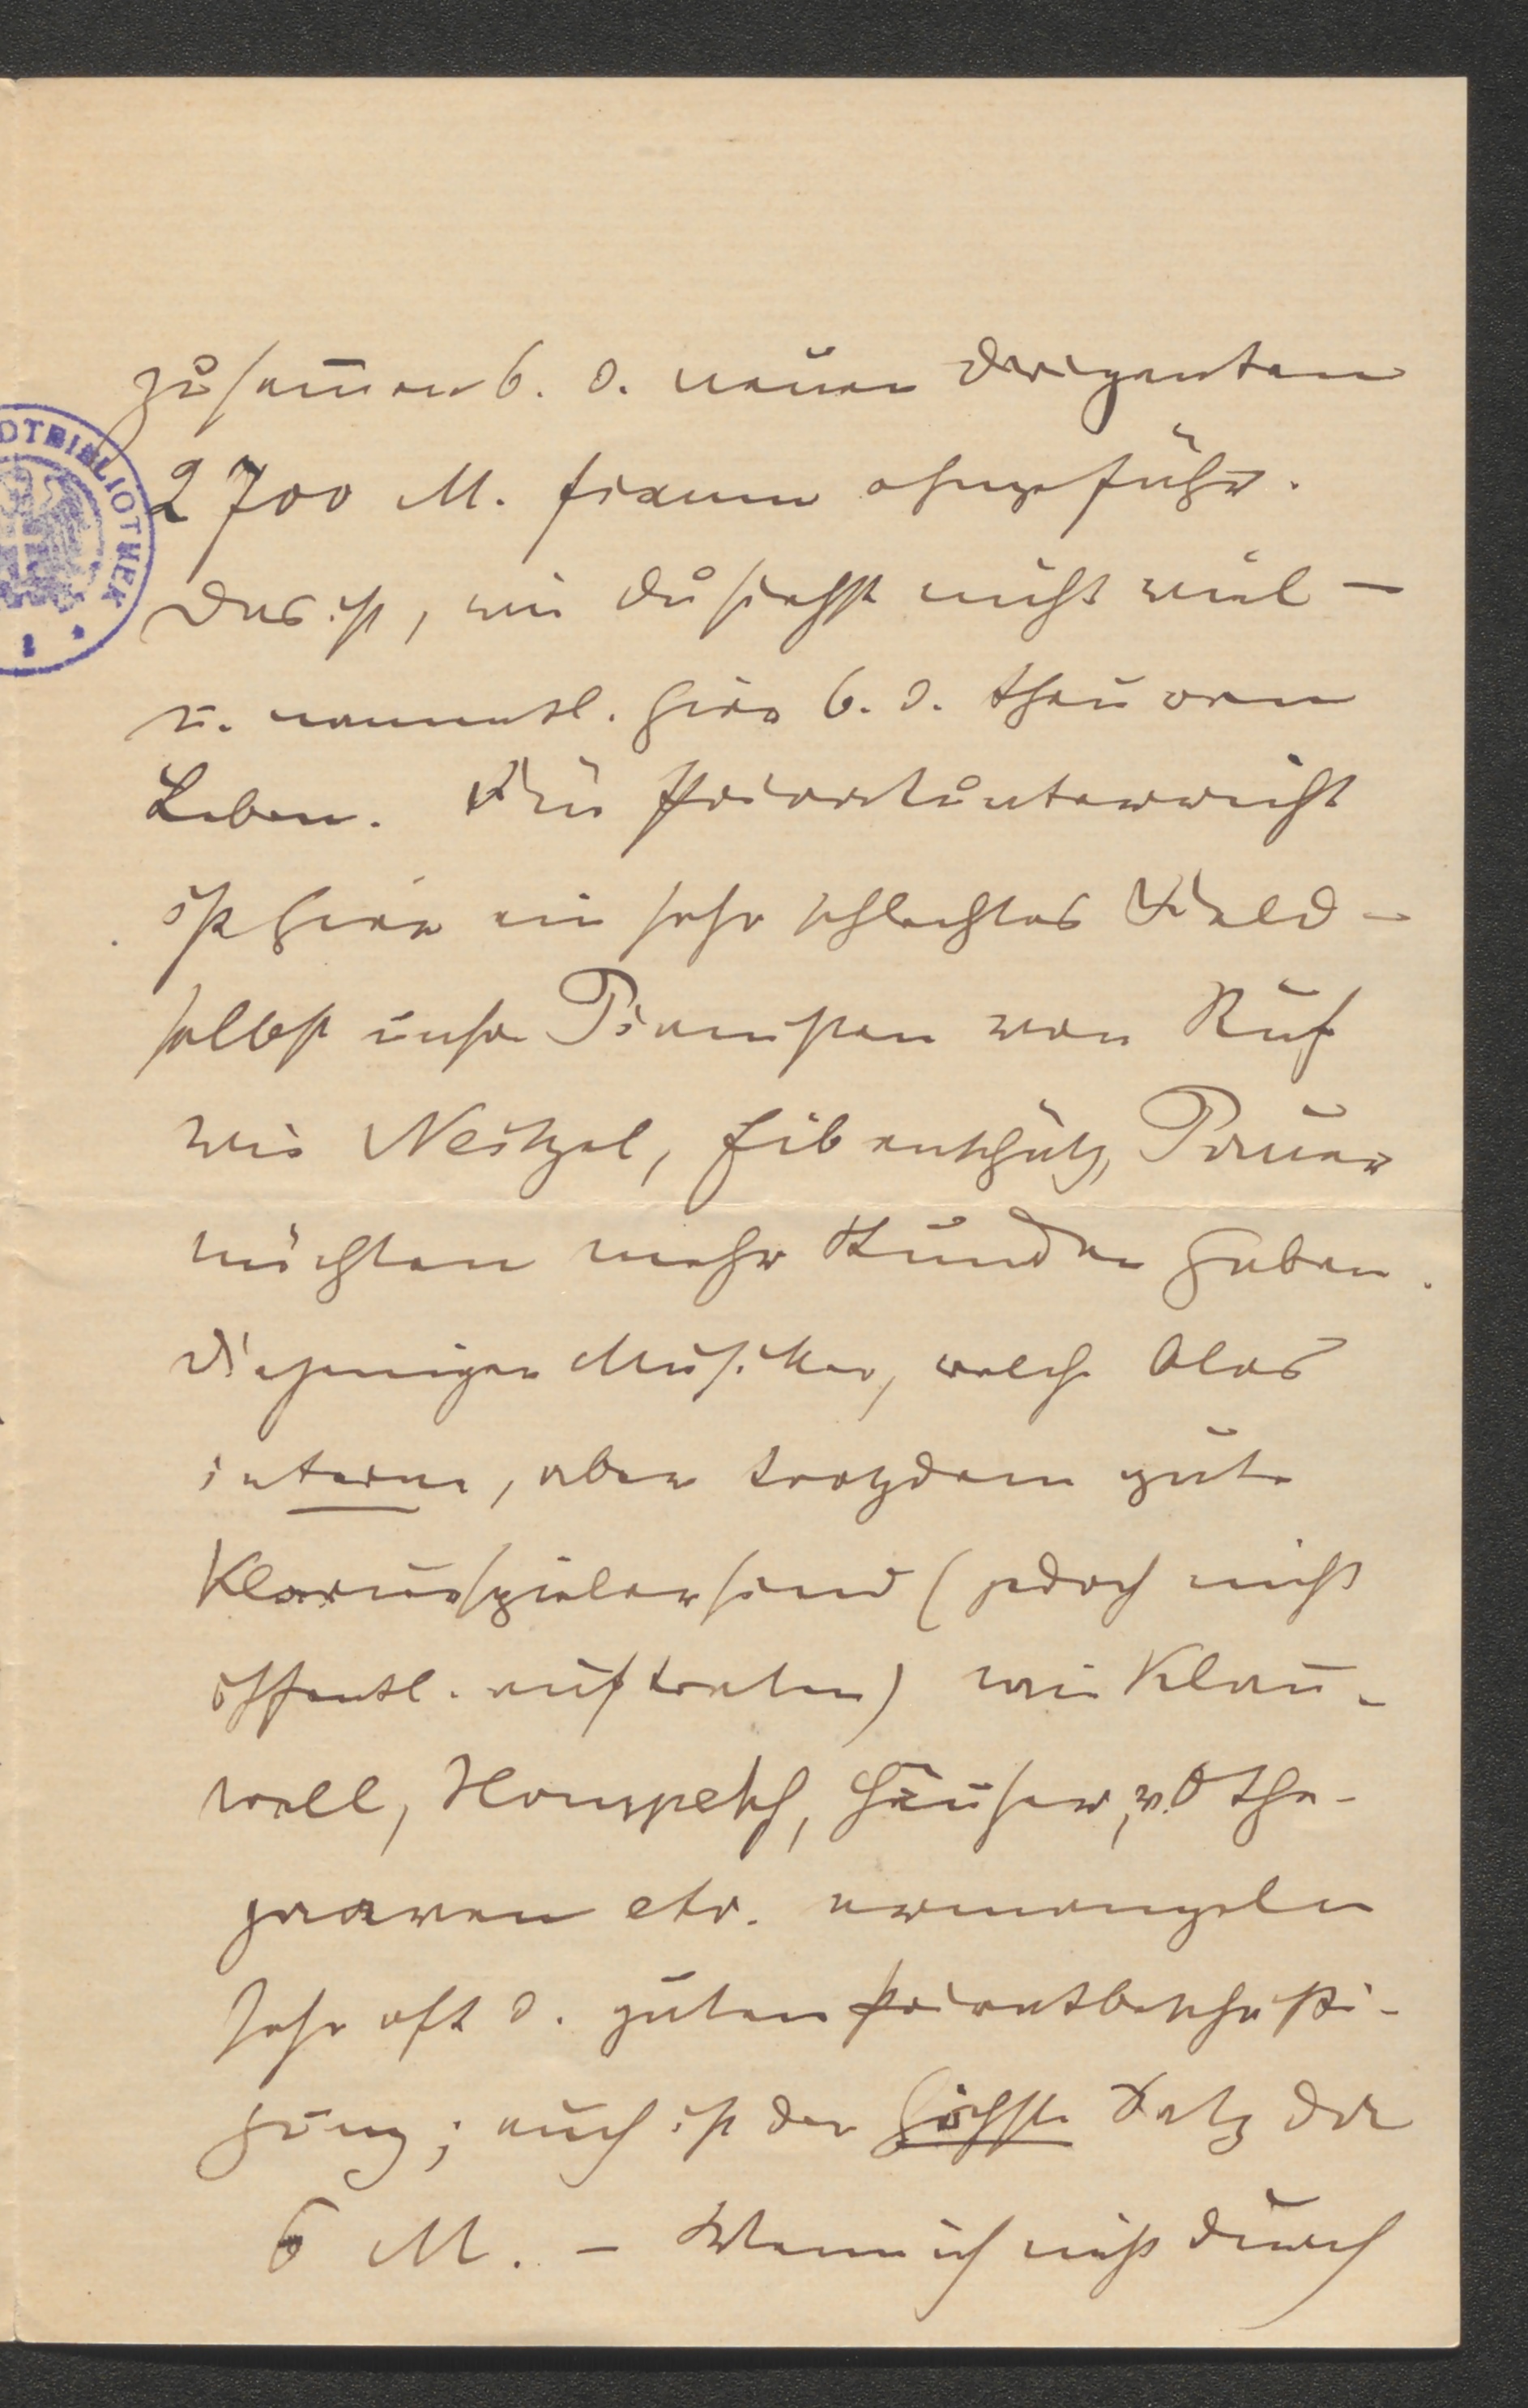 zusam̅en b. d. neuen Dirigenten
2700 M. fixum ohngefähr.
Das ist, wie Du siehst nicht viel –
u. namentl. hier b. d. theuren
Leben. Für Privatunterricht
ist hier ein sehr schlechtes Feld –
selbst unsre Pianisten von Ruf
wie Neitzel, Eibenschütz, Pauer
möchten mehr Stunden haben.
Diejenigen Musiker, welche blos
interne, aber trotzdem gute
Klavierspieler sind (jedoch nicht
öffentl. auftreten) wie Klau-
well, Hompesch, Häuser, v. Othe-
graven etc. ermangeln
sehr oft d. guten Privatbeschäfti-
gung; auch ist der höchste Satz der
6 M. – Wenn ich nicht durch
DTBIBLIOTHEK